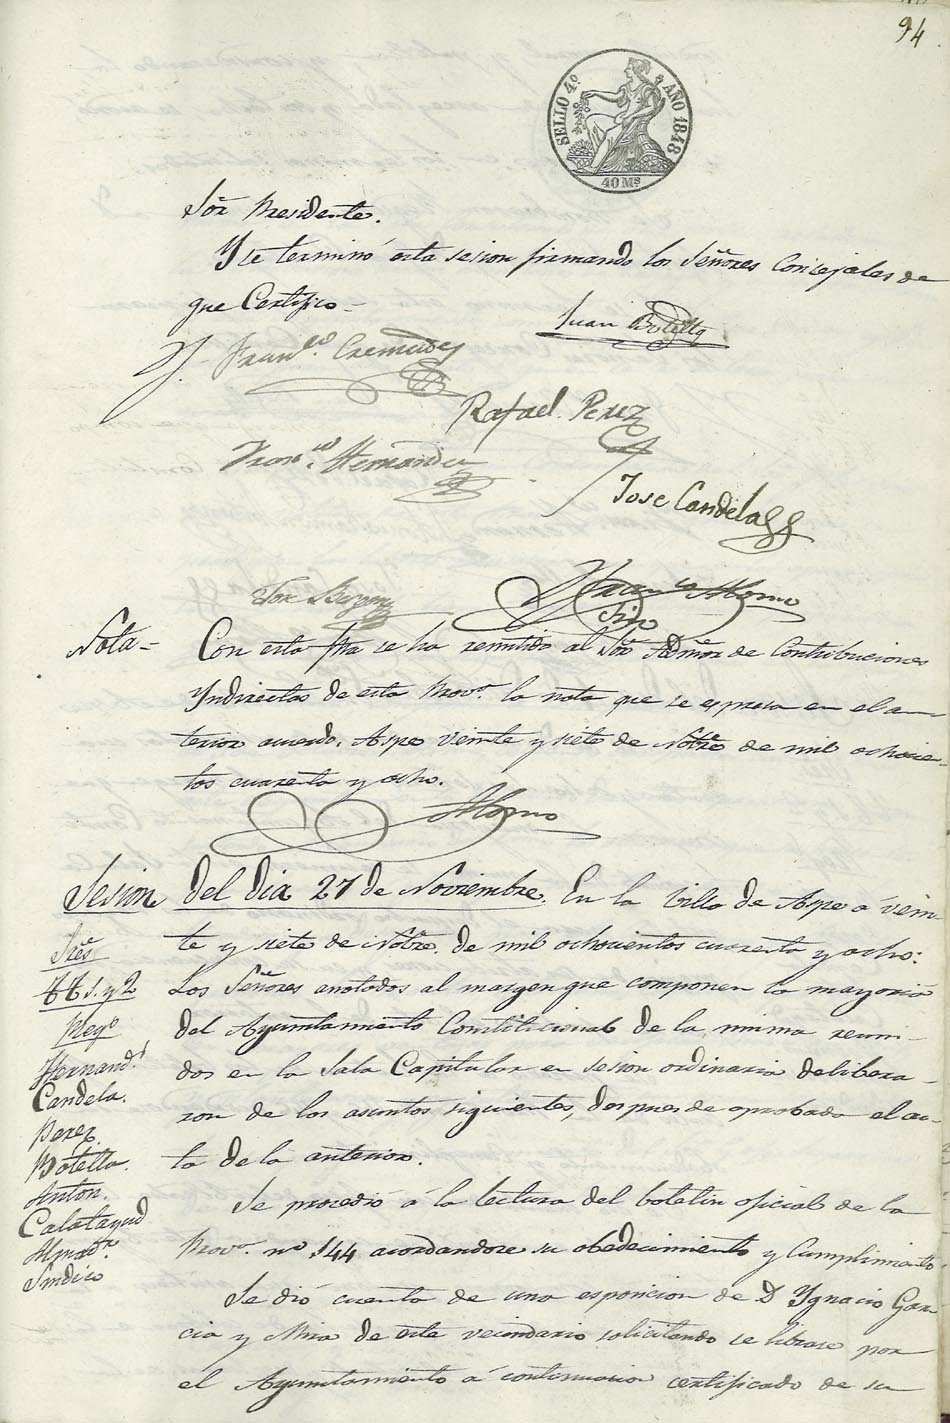 94
SELLO 4º AÑO 1848
40 Ms
Sōr Presidente.
Y se terminó esta sesion firmando los Señores Concejales de
que Certifico -
Juan Botella
Franco. Cremades
Rafael Perez
Franco. Hernandez
Jose Candela
Alonso
Srio
Nota - Con esta fha se ha remitido al Sōr Admōr de Contribuciones
Yndirectas de esta Provª. la nota que se espresa en el an-
terior acuerdo. Aspe veinte y siete de Nobre de mil ochocien-
tos cuarenta y ocho.
Alonso
Sesion del dia 27 de Noviembre. En la Villa de Aspe á vein
te y siete de Nobre. de mil ochocientos cuarenta y ocho:
Los Señores anotados al margen que componen la mayoria
del Ayuntamiento Constitucional de la misma reuni-
dos en la Sala Capitular en sesion ordinaria delibera-
ron de los asuntos siguientes, despues de aprobada el ac-
ta de la anterior.
Sres
TT 1. y 2
Regs
Hernandz
Candela.
Perez.
Botella.
Anton.
Calatayud
Almodr.
Sindico
Se procedió á la lectura del boletin oficial de la
Provª. nº 144 acordandose su obedecimiento y Cumplimiento
Se dió cuenta de una esposicion de D Ygnacio Gar
cia y Mira de este vecindario solicitando se librase por
el Ayuntamiento á continuacion certificado de su